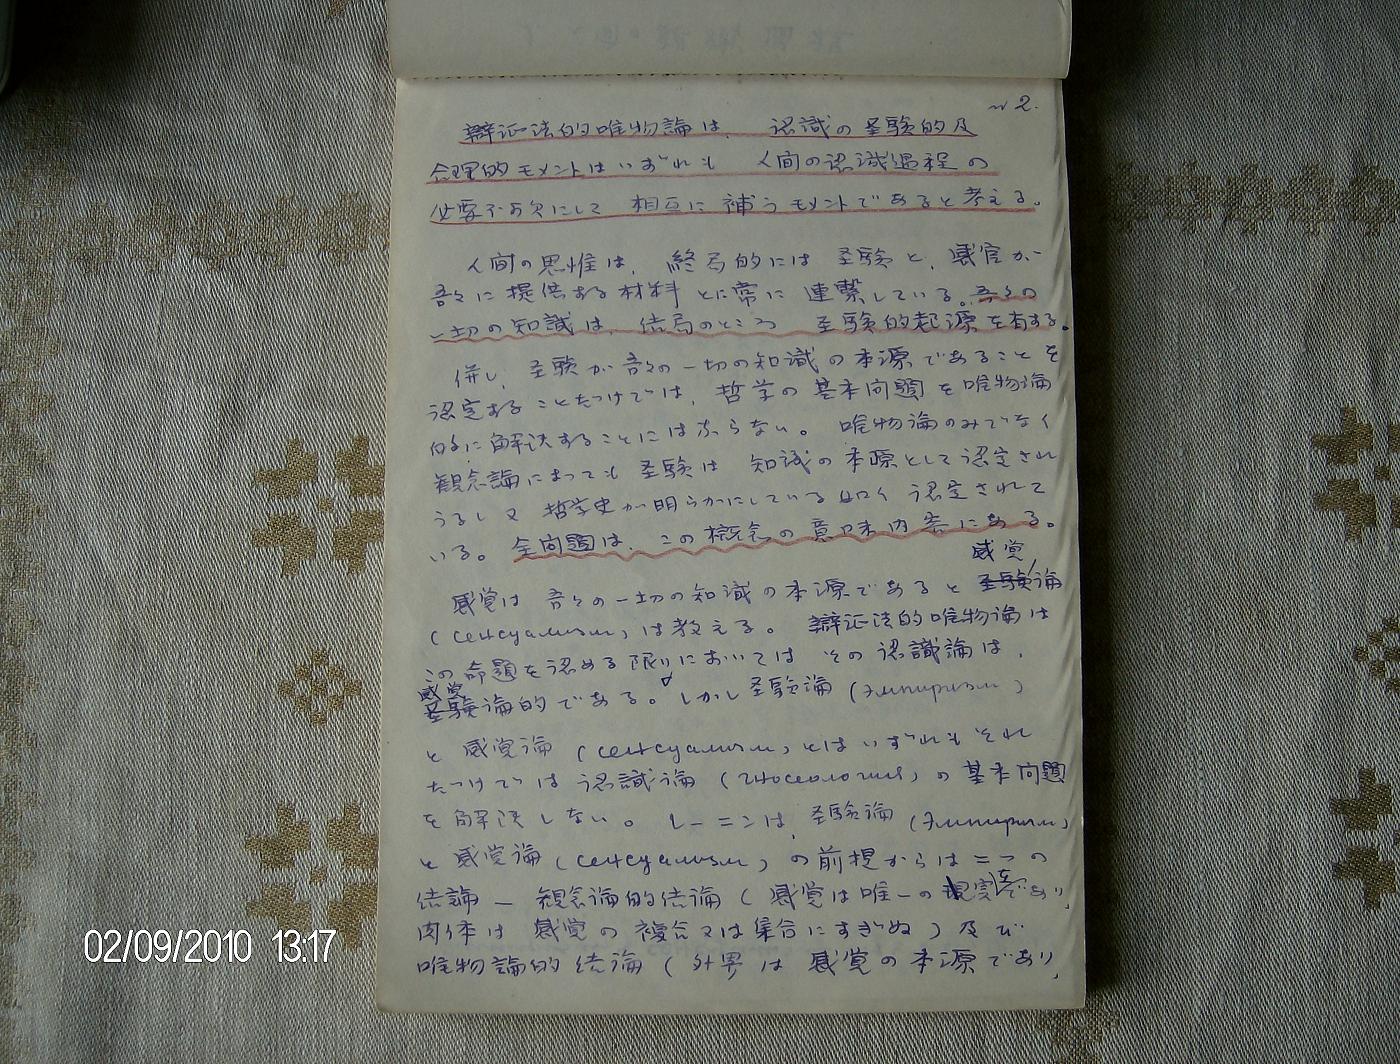 № 2.
辯证法的唯物論は、 認識の圣験的及
合理的モメントはいずれも 人間の認識過程の
必要不可欠にして 相互に補うモメントであると考える。
人間の思惟は、 終局的には 圣験と、感官が
吾々に提供する材料とに常に 連繋している。吾々の
一切の知識は、結局のところ 圣験的起源を有する。
併し、圣験が吾々の一切の知識の本源であることを
認定することだけでは、哲学の基本问題を唯物論
的に解決することにはならない。 唯物論のみでなく
観念論によっても 圣験は 知識の本源として認定され
うるし又 哲学史が明らかにしている如く 認定されて
いる。 全问題は、この概念の意味内容にある。
感覚
感覚は 吾々の一切の知識の本源であると 圣験論
(сенсуализм) は教える。 辯证法的唯物論は
この命題を認める限りにおいては その認識論は、
感覚
圣験論的である。しかし 圣験論 (эмпиризм)
と 感覚論 (сенсуализм) とはいずれもそれ
だけでは 認識論 (гносеология) の基本问題
を解決しない。 レーニンは、圣験論 (эмпиризм)
と 感覚論 (сенсуализм) の前提からは二つの
結論 — 観念論的結論 ( 感覚は唯一の現実であり、
肉体は 感覚の複合又は集合にすぎぬ ) 及び
唯物論的結論 ( 外界は 感覚の本源であり、
02/09/2010 13:17